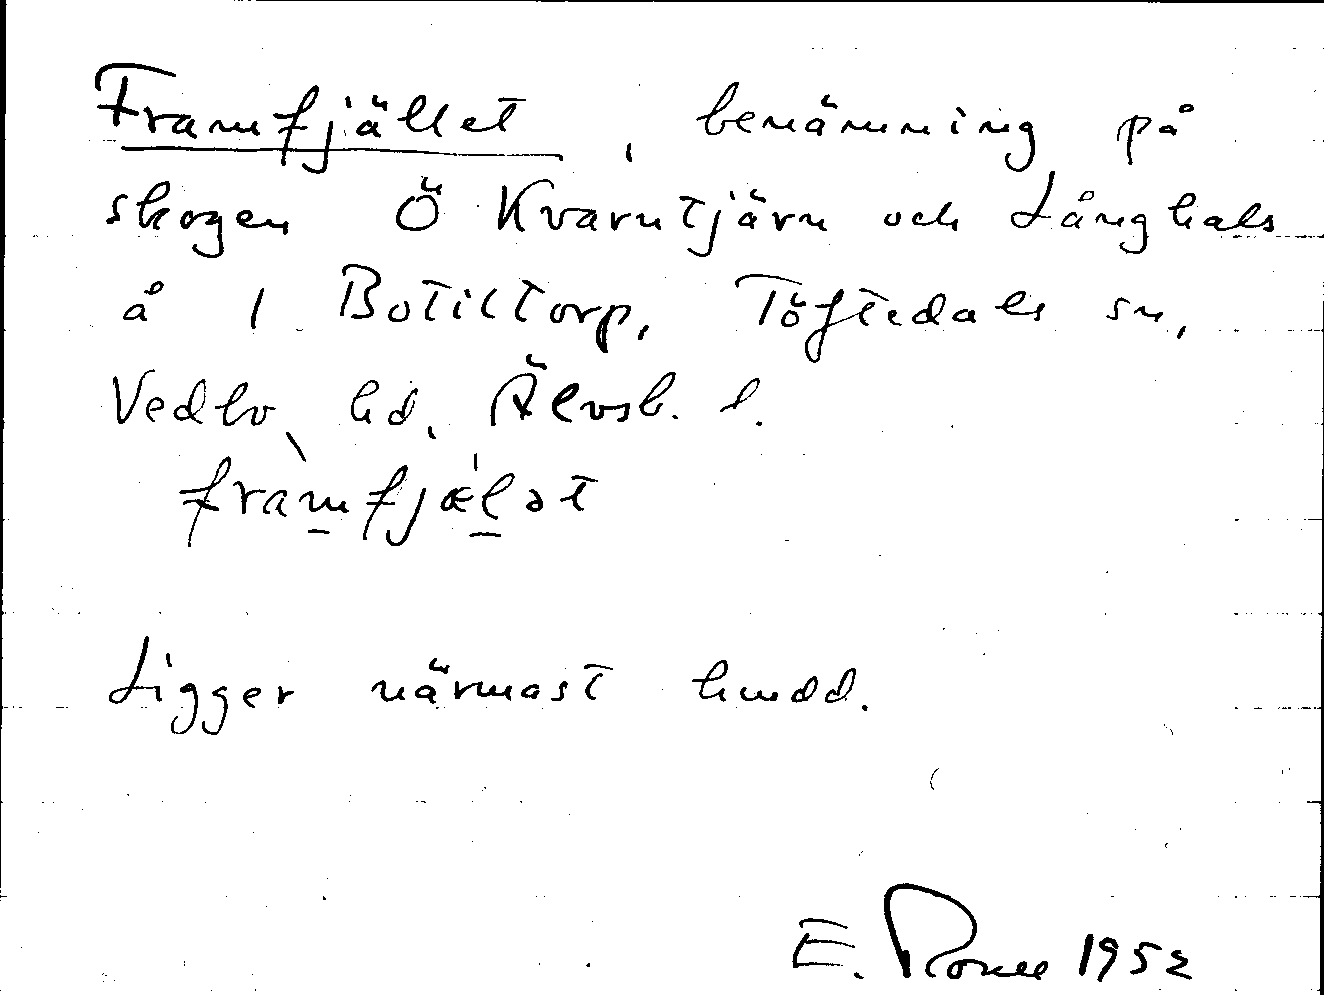 Framfjället, benämning på
skogen Ö Kvarntjärn och Långhals
å 1 Botiltorp, Töftedals sn,
Vedbo hd, Älvsb. l.
fràmfjæ̍lət
Ligger närmast hmdd.
E. 1952